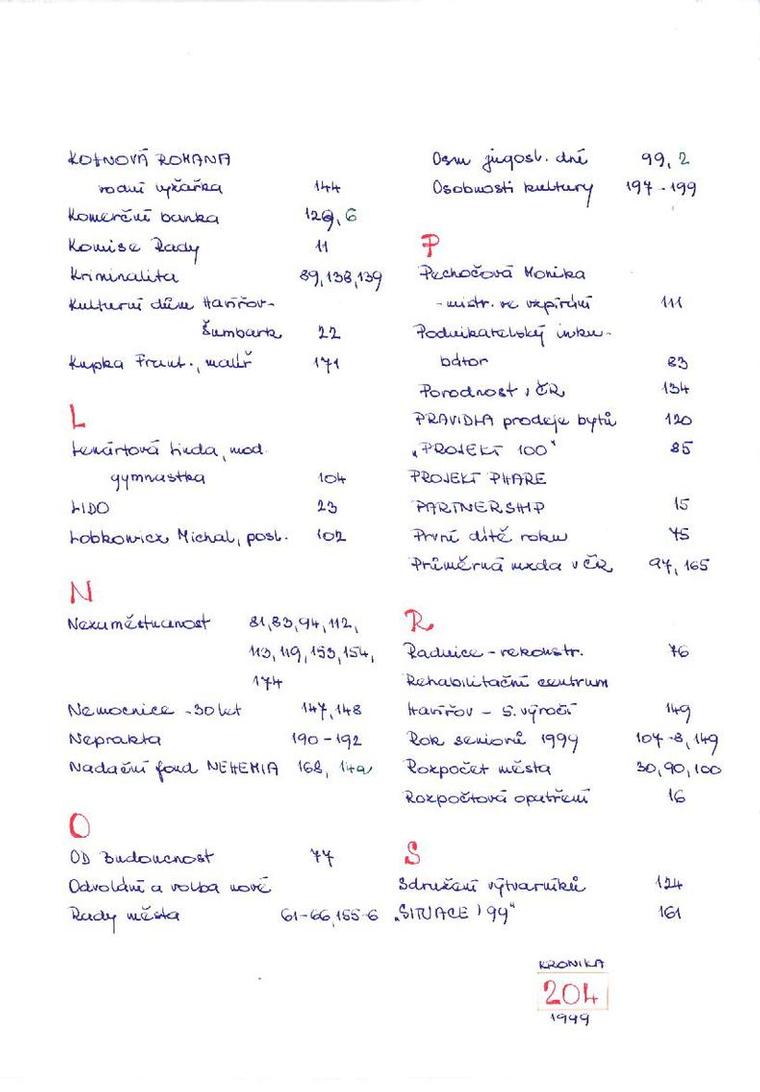 KOTNOVÁ ROMANA
vodní lyžařka 144
Komerční banka 129, 6
Komise Rady 11
Kriminalita 89, 138, 139
Kulturní dům Havířov-
Šumbark 22
Kupka Frant., malíř 171
L
Lenártová Linda, mod.
gymnastka 104
LIDO 23
Lobkowicz Michal, posl. 102
N
Nezaměstnanost 81, 83, 94, 112,
113, 119, 153, 154,
174
Nemocnice - 30 let 147, 148
Neprakta 190 - 192
Nadační fond NEHEMIA 168, 149
O
OD Budoucnost 77
Odvolání a volba nové
Rady města 61-66, 155-6
Osm jugosl. dní 99, 2
Osobnosti kultury 197 - 199
P
Pechočová Monika
- mistr. ve vzpírání 111
Podnikatelský inku-
bátor 83
Porodnost v ČR 134
PRAVIDLA prodeje bytů 120
„PROJEKT 100" 85
PROJEKT PHARE
PARTNERSHIP 15
První dítě roku 75
Průměrná mzda v ČR 97, 165
R
Radnice - rekonstr. 76
Rehabilitační centrum
Havířov - 5. výročí 149
Rok seniorů 1999 107-8, 149
Rozpočet města 30, 90, 100
Rozpočtová opatření 16
S
Sdružení výtvarníků 124
„SITUACE '99" 161
KRONIKA
204
1999